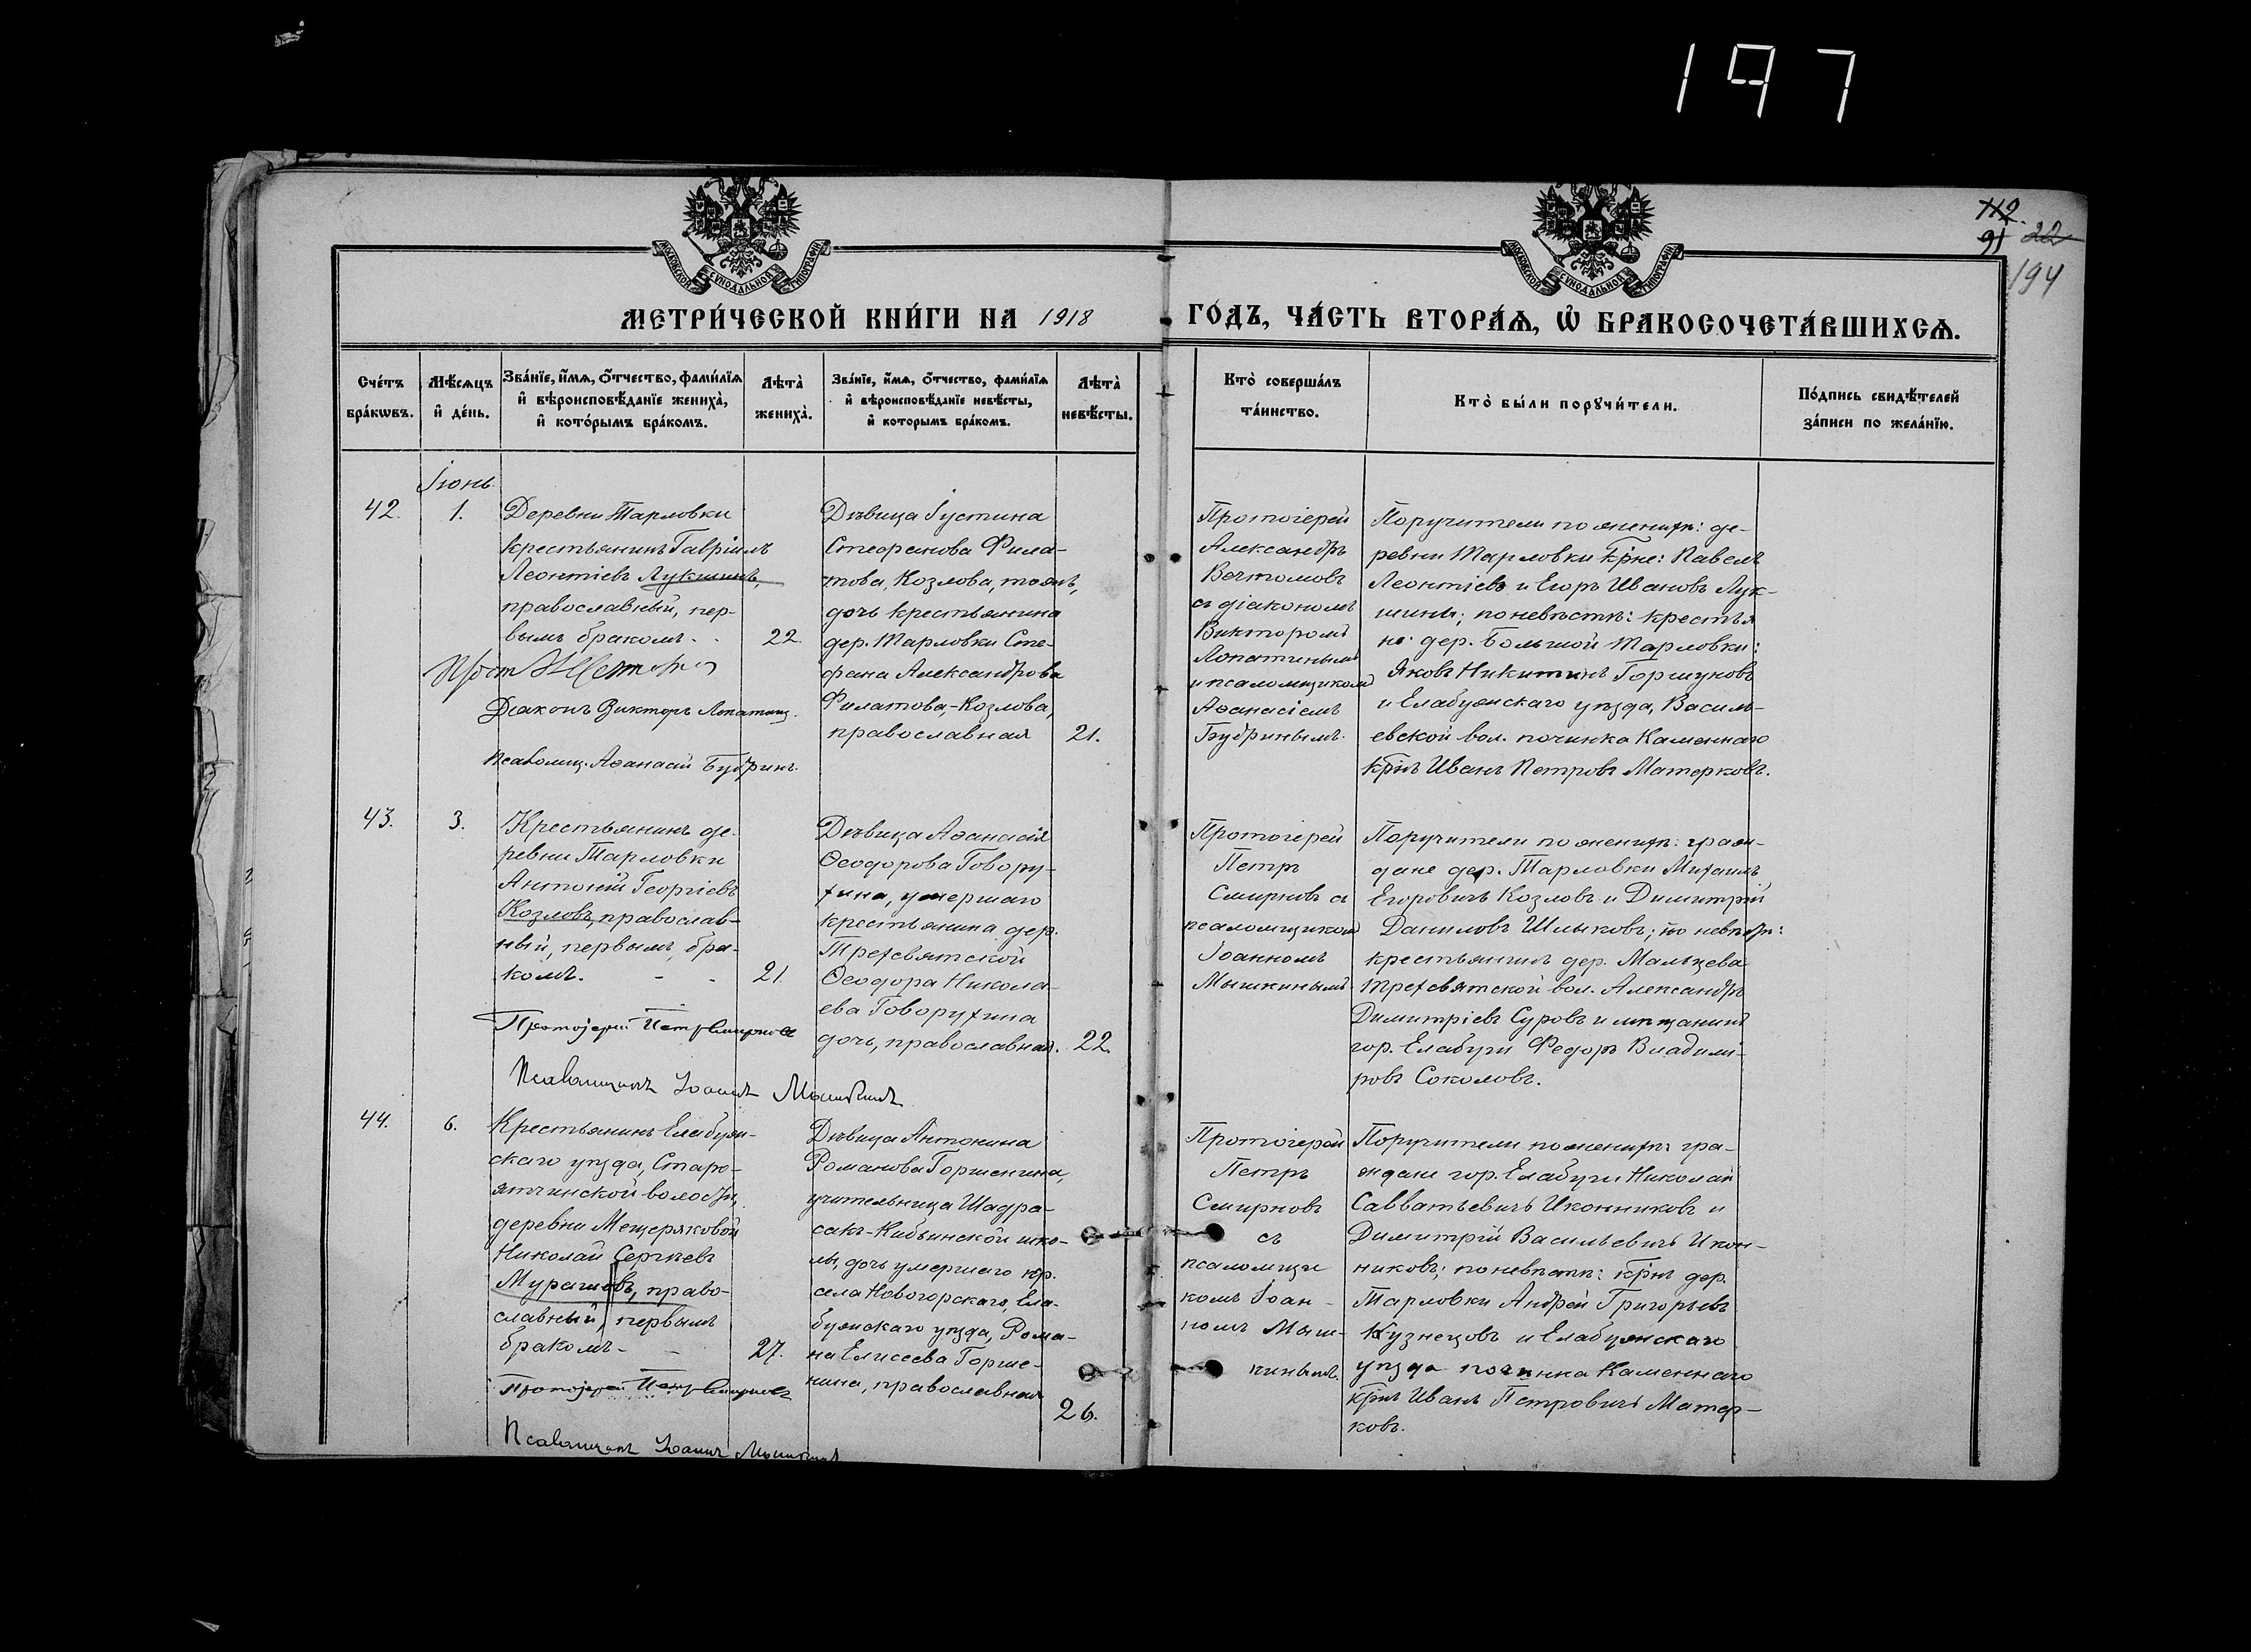 197
112.
91 22
194
МОСКОВСКОЙ СѴНОДАЛЬНОЙ ТИПОГРАФІИ
МОСКОВСКОЙ СѴНОДАЛЬНОЙ ТИПОГРАФІИ
МЕТРИ́ЧЕСКОЙ КНИ́ГИ НА 1918
ГО́ДЪ, ЧА́СТЬ ВТОРА́Ѧ, Ѡ҆ БРАКОСОЧЕТА́ВШИХСѦ.
Сче́тъ
бра́кѡвъ.
Мѣ́сѧцъ
и҆ де́нь.
Зва́нїе, и҆́мѧ, ѻ҆́тчество, фами́лїѧ
и҆ вѣроисповѣ́данїе жениха̀,
и҆ кото́рымъ бра́комъ.
Лѣта̀
жениха̀.
Зва́нїе, и҆́мѧ, ѻ҆́тчество, фами́лїѧ
и҆ вѣроисповѣ́данїе невѣ́сты,
и҆ которымъ бра́комъ.
Лѣта̀
невѣ́сты.
Кто̀ соверша́лъ
та́инство.
Кто̀ бы́ли порꙋчи́тели.
По́дпись свидѣ́телей
за́писи по жела́нїю.
Іюнь.
42.
1.
Деревни Тарловки
крестьянинъ Гавріилъ
Леонтіевъ Лукшинъ,
православный, пер-
вымъ бракомъ.
22.
Діаконъ Викторъ Лопатинъ.
Псаломщ. Аѳанасій Бубринъ.
Дѣвица Іустина
Стефанова Фила-
това, Козлова, тожъ,
дочь крестьянина
дер. Тарловки Сте-
фана Александрова
Филатова,-Козлова,
православная
21.
Протоіерей
Александръ
Вечтомовъ
съ діакономъ
Викторомъ
Лопатинымъ
и псаломщикомъ
Аѳанасіемъ
Бубринымъ.
Поручители по женихѣ: де-
ревни Тарловки кр̅не: Павелъ
Леонтіевъ и Егоръ Ивановъ Лук-
шины; по невѣстѣ: крестья
не: дер. Большой Тарловки:
Яковъ Никитинъ Горшуновъ
и Елабужскаго уѣзда, Василь-
евской вол. починка Каменнаго
кр̅нъ Иванъ Петровъ Матерковъ.
43.
3.
Крестьянинъ де-
ревни Тарловки
Антоній Георгіевъ
Козловъ, православ-
ный, первымъ бра-
комъ.
21.
Протоіерей Петръ Смирновъ
Псаломщикъ Іоаннъ Мышкинъ
Дѣвица Аѳанасія
Ѳеодорова Говору-
хина, умершаго
крестьянина дер.
Трехсвятской
Ѳеодора Никола-
ева Говорухина
дочь, православная.
22.
Протоіерей
Петръ
Смирновъ съ
псаломщикомъ
Іоанномъ
Мышкинымъ.
Поручители по женихѣ: граж-
дане дер. Тарловки Михаилъ
Егоровичъ Козловъ и Димитрій
Даниловъ Шлыковъ; по невѣстѣ:
крестьянинъ дер. Мальцева
Трехсвятской вол. Александръ
Димитріевъ Суровъ и мѣщанинъ
гор. Елабуги Федоръ Владимі-
ровъ Соколовъ.
44.
6.
Крестьянинъ Елабуж-
скаго уѣзда, Старо-
ятчинской волости,
деревни Мещеряковой
Николай Сергѣевъ
Мурашовъ, право-
славный, первымъ
бракомъ
27.
Протоіерей Петръ Смирновъ
Псаломщикъ Іоаннъ Мышкинъ
Дѣвица Антонина
Романова Горшенина,
учительница Шадра-
сакъ-Кибьинской шко-
лы, дочь умершаго кр.
села Новогорскаго, Ела-
бужскаго уѣзда, Рома-
на Елисеева Горше-
нина, православная
26.
Протоіерей
Петръ
Смирновъ
съ
псаломщи
комъ Іоан-
номъ Мыш-
кинымъ.
Поручители по женихѣ гра-
ждане гор. Елабуги Николай
Савватьевичъ Иконниковъ и
Димитрій Васильевичъ Икон-
никовъ; по невѣстѣ: кр̅нъ дер.
Тарловки Андрей Григорьевъ
Кузнецовъ и Елабужскаго
уѣзда починка Каменнаго
кр̅нъ Иванъ Петровичъ Матер-
ковъ.